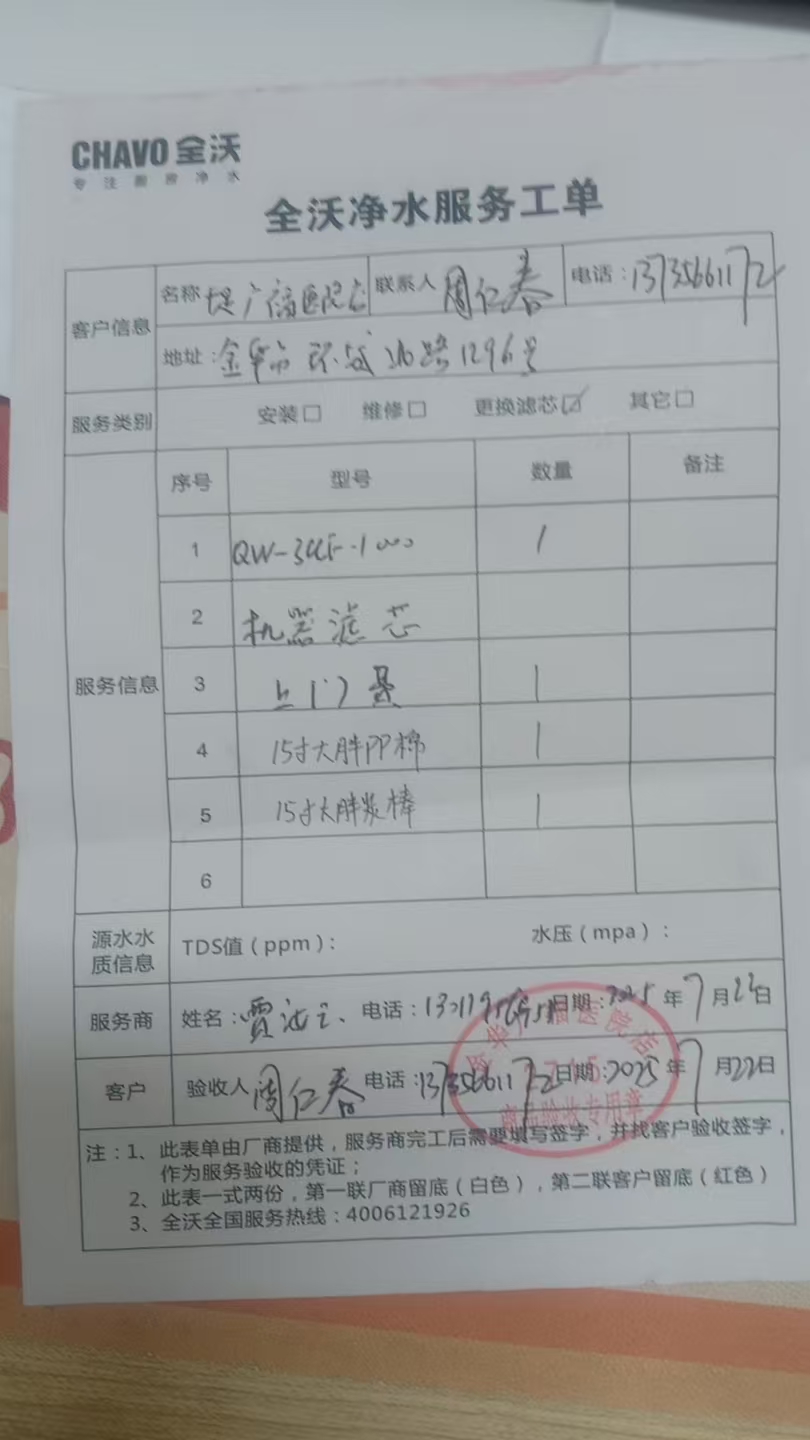 CHAVO 全沃
专注厨房净水
全沃净水服务工单
客户信息 名称 广福医院 联系人 周仁春 电话：13735661172
地址：金华市环城北路1296号
服务类别 安装□ 维修□ 更换滤芯☑ 其它□
服务信息 序号 型号 数量 备注
1 1
2 机器滤芯
3 上门 1
4 15寸大胖PP棉 1
5 15寸大胖炭棒 1
6
源水水质信息 TDS值（ppm）： 水压（mpa）：
服务商 姓名：贾 电话： 日期：2025年7月22日
客户 验收人 周仁春 电话：13735661172 日期：2025年7月22日
医院
验收专用章
注：1、此表单由厂商提供，服务商完工后需要填写签字，并找客户验收签字，
作为服务验收的凭证；
2、此表一式两份，第一联厂商留底（白色），第二联客户留底（红色）
3、全沃全国服务热线：4006121926